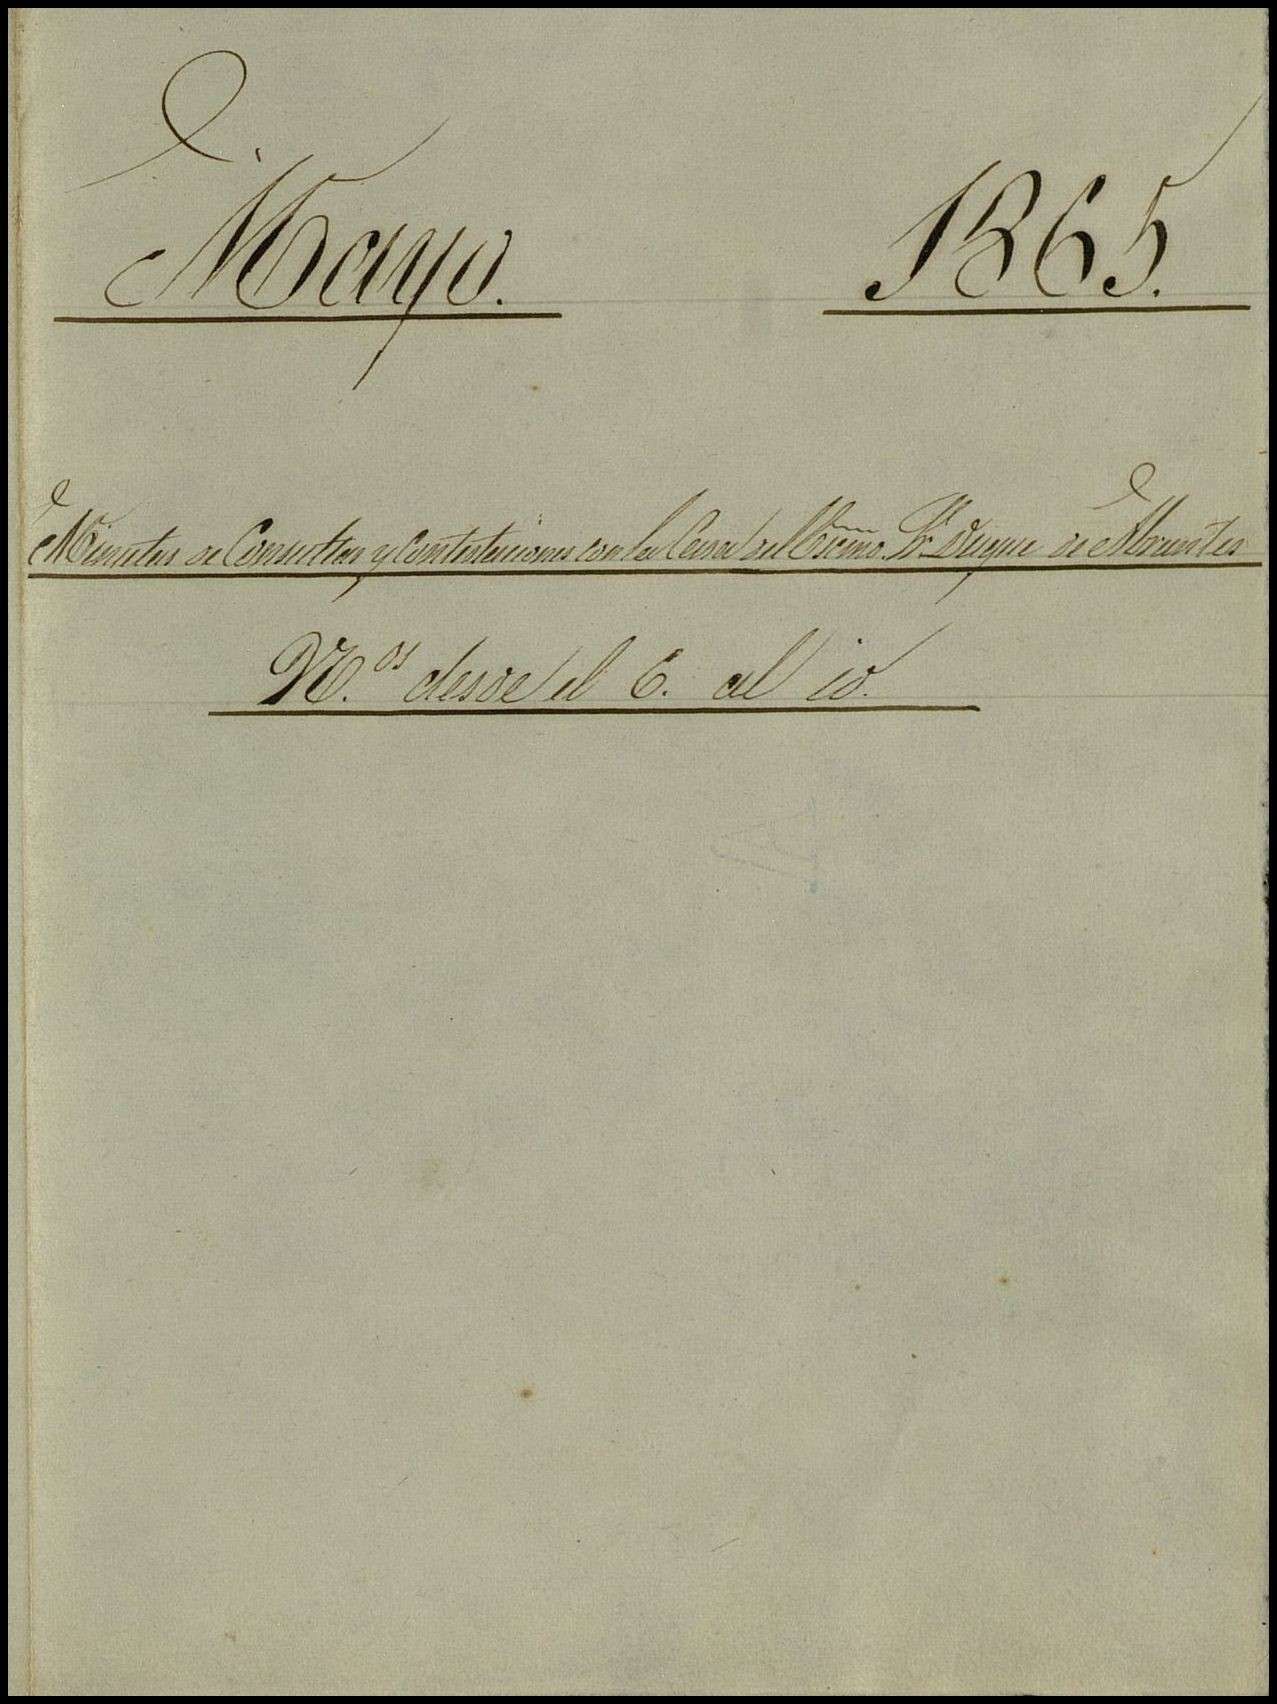 Mayo. 1865.
Minutas de Consultas y Contestaciones con la Casa del Excmo. Sr. Duque de Abrantes
N.os desde el 6. al 10.